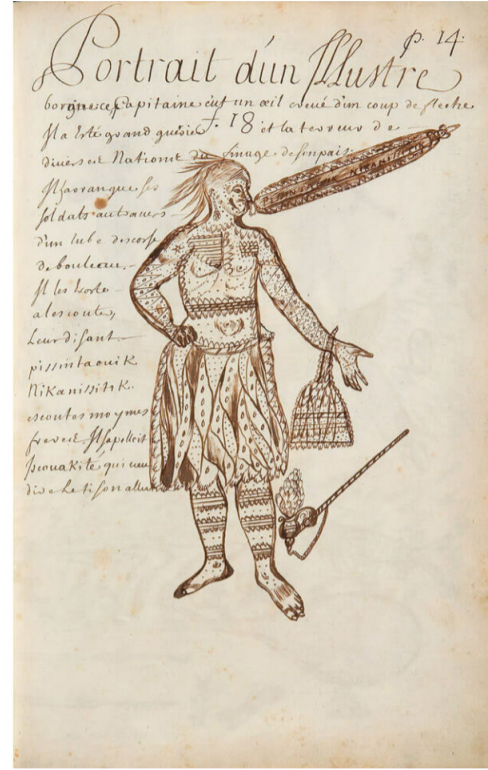 p. 14.
Portrait d'un Illustre
borgne ce Capitaine eut un œil crevé d'un coup de fleche
Il a esté grand et la terreur de
diverses Nations du de son pais
f. 18
Il harangue ses
soldats au travers
d'un tube d'escorse
de bouleau.
Il les exorte
a l'escouter,
Leur disant
pissintaouik
Nikanissitik
escoutes moy mes
freres Il s'apelloit
Iscouakité, qui veut
dire le tison allumé